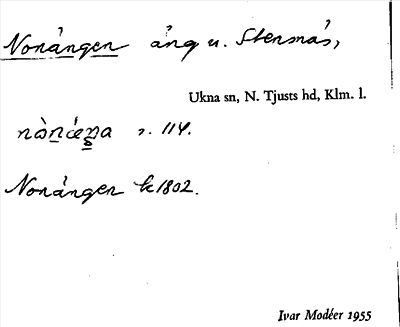 Norängen äng u. Stensnäs,
Ukna sn, N. Tjusts hd, Klm. l.
s. 114.
Norängen k 1802.
Ivar Modéer 1955